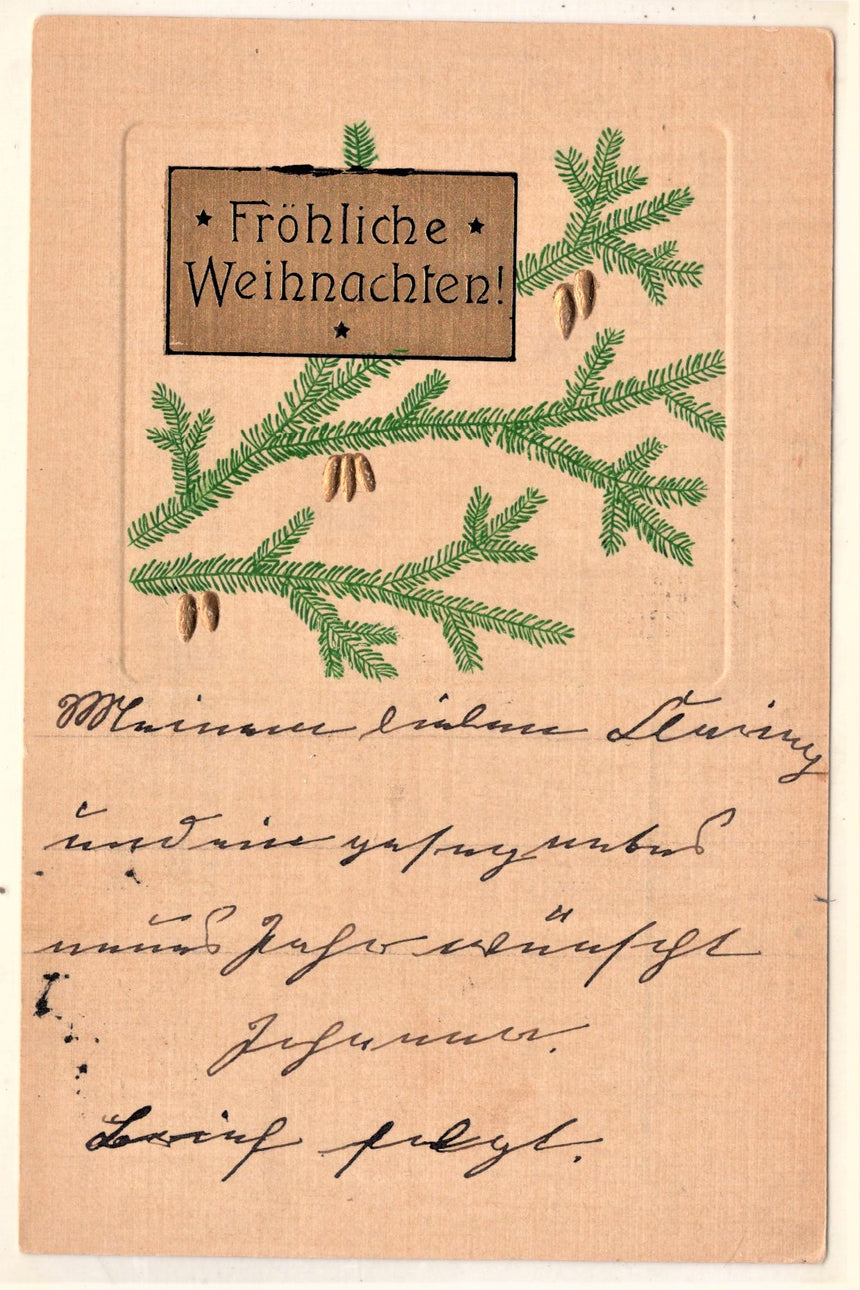 Fröhliche
Weihnachten!
Meinem lieben
und ein gesegnetes
neues Jahr wünscht
Johanna.
Brief folgt.